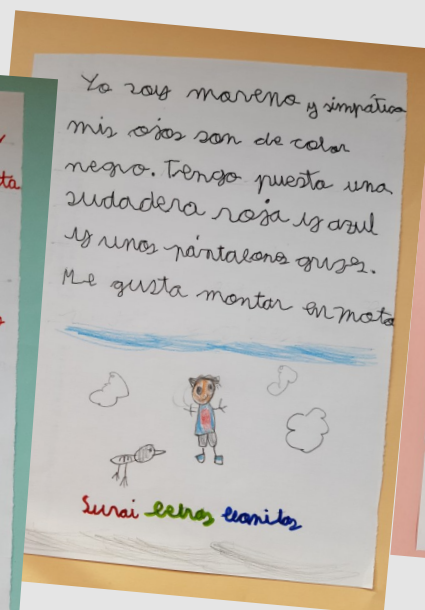 Yo soy moreno y simpático
mis ojos son de color
negro. Tengo puesta una
sudadera roja y azul
y unos pántalons grises.
Me gusta montar en moto
ta
Surai